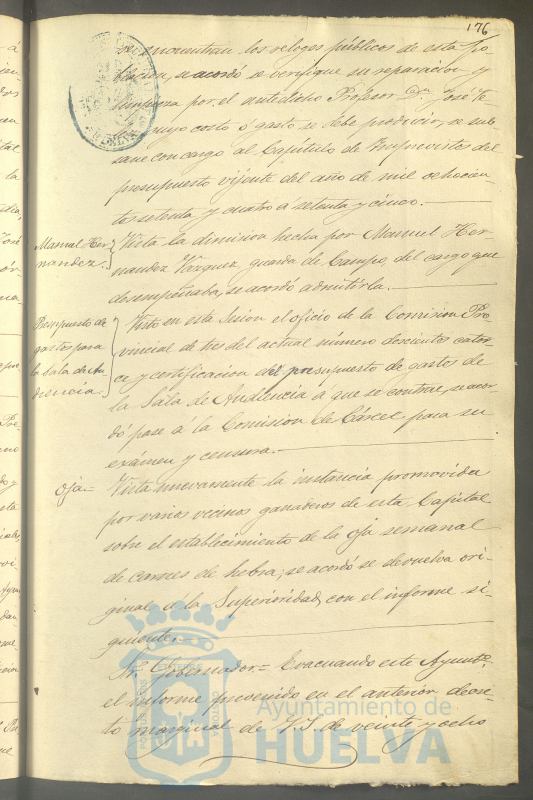 176
se encuentran los reloges públicos de esta po-
blacion, se acordó se verifique su reparacion y
limpieza por el antedicho Profesor Dn. José Te-
cuyo costo ó gasto se debe producir, se sub-
sane con cargo al Capítulo de Imprevistos del
presupuesto vijente del año de mil ochocien-
tos setenta y cuatro á setenta y cinco.
Manuel Her-
nandez.
Vista la dimision hecha por Manuel Her-
nandez Vazquez, guarda de Campo, del cargo que
desempeñaba, se acordó admitirla.
Presupuesto de
gastos para
la Sala de Au-
diencia.
Visto en esta Sesion el oficio de la Comision Pro-
vincial de tres del actual número doscientos cator-
ce y certificacion del presupuesto de gastos de
la Sala de Audiencia á que se contrae, se acor-
dó pase á la Comision de Cárcel para su
exámen y censura.
Oja=
Vista nuevamente la instancia promovida
por varios vecinos ganaderos de esta Capital
sobre el establecimiento de la oja semanal
de carnes de hebra; se acordó se devuelva ori-
ginal á la Superioridad, con el informe si-
guiente.
Sr. Gobernador= Evacuando este Ayunto.
el informe prevenido en el anterior decre-
to marginal de V.S. de veinte y ocho
Ayuntamiento de
HUELVA